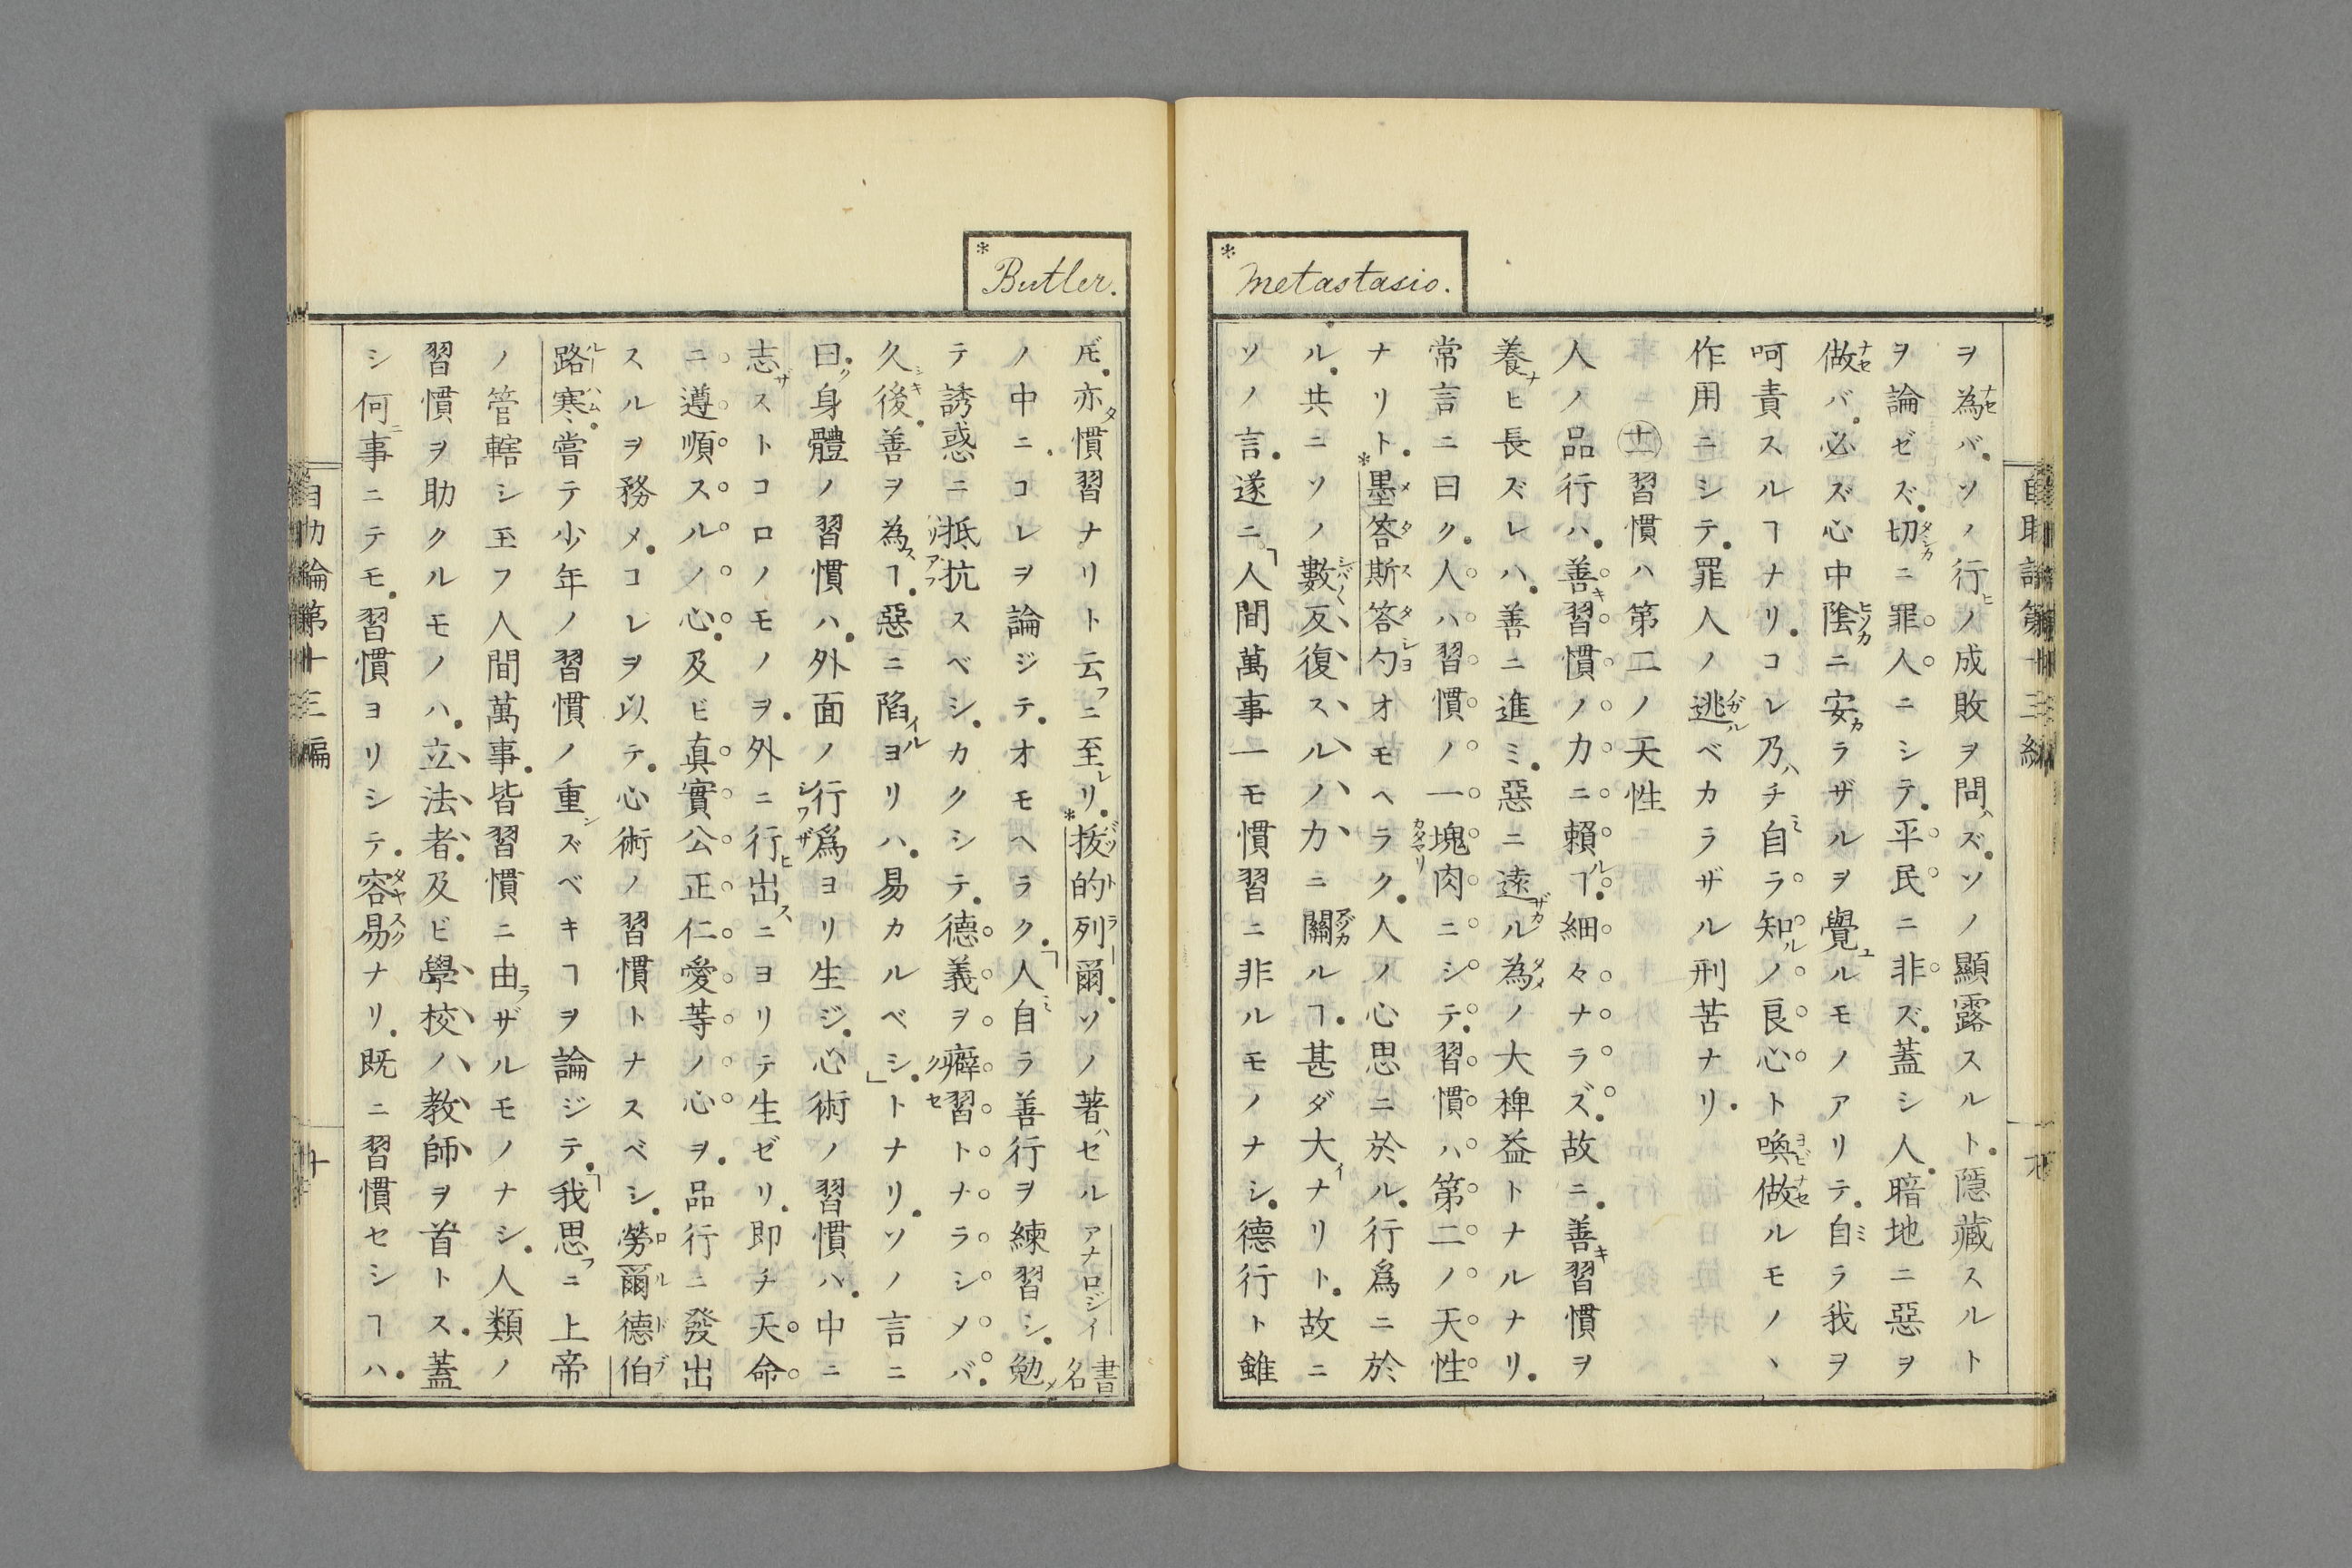 *Metastasio.
ヲ為バ。ソノ行ノ成敗ヲ問ズ。ソノ顯露スルト。隱藏スルト
ヲ論ゼズ。切ニ罪人ニシテ。平民ニ非ズ。蓋シ人。暗地ニ惡ヲ
做バ。必ズ心中陰ニ安ラザルヲ覺ルモノアリテ。自ラ我ヲ
呵責スルヿナリ。コレ乃チ自ラ知ルノ良心ト喚做ルモノヽ
作用ニシテ。罪人ノ逃ベカラザル刑苦ナリ。
㊉一 習慣ハ第二ノ天性
人ノ品行ハ。善キ習慣ノ力ニ賴ルヿ。細々ナラズ。故ニ。善キ習慣ヲ
養ヒ長ズレハ。善ニ進ミ。惡ニ遠ザカル為ノ大裨益トナルナリ。
常言ニ曰ク。人ハ習慣ノ一塊肉ニシテ。習慣ハ第二ノ天性
ナリト。*墨答斯答勺オモヘラク。人ノ心思ニ於ル。行爲ニ於
ル。共ニソノ數〻反復スルノ力ニ關ルヿ。甚ダ大ナリト。故ニ
ソノ言。遂ニ。「人間萬事一モ慣習ニ非ルモノナシ。德行ト雖
*Butler.
𪜈。亦タ慣習ナリト云フニ至レリ。*拔的列爾。ソノ著ハセルアナロジイ書名
ノ中ニ。コレヲ論ジテ。オモヘラク。「人自ラ善行ヲ練習シ。勉メ
テ誘惑ニ抵抗スベシ。カクシテ。德義ヲ癖習トナラシメバ。
久後。善ヲ為スヿ。惡ニ陷イルヨリハ。易カルベシ。」トナリ。ソノ言ニ
曰ク。身體ノ習慣ハ。外面ノ行爲ヨリ生ジ。心術ノ習慣ハ。中ニ
志ザストコロノモノヲ。外ニ行ヒ出スニヨリテ生ゼリ。即チ天命
ニ遵順スルノ心。及ビ真實公正仁愛等ノ心ヲ。品行ニ發出
スルヲ務メ。コレヲ以テ。心術ノ習慣トナスベシ。勞爾德伯
路寒。嘗テ少年ノ習慣ノ重ンズベキヿヲ論ジテ。「我思フニ上帝
ノ管轄シ玉フ人間萬事。皆習慣ニ由ラザルモノナシ。人類ノ
習慣ヲ助クルモノハ。立法者。及ビ學校ノ教師ヲ首トス。蓋
シ何事ニテモ。習慣ヨリシテ。容易ナリ。既ニ習慣セシヿハ。
自助論第十三編
十